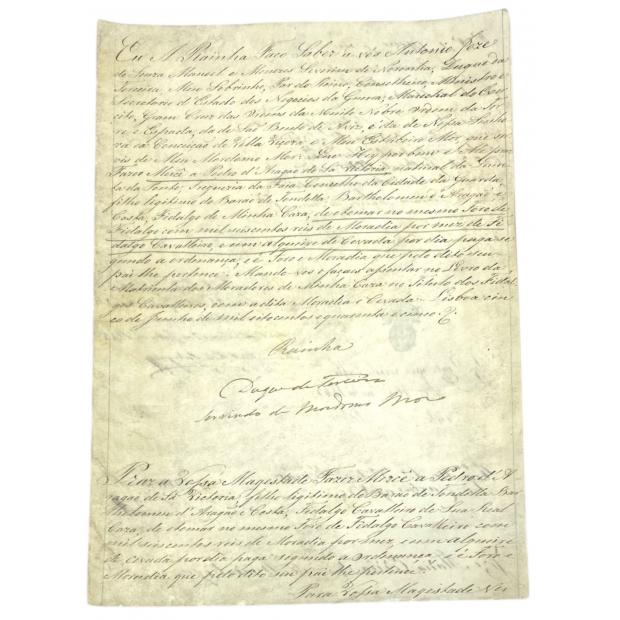 Eu A Rainha Faço Saber a vós Antonio Joze
de Souza Manoel e Menezes Severim de Noronha, Duque da
Terceira, Meu Sobrinho, Par do Reino, Conselheiro, Ministro e
Secretario d'Estado dos Negocios da Guerra, Marechal do Exer
cito, Gram Cruz das Ordens da Muito Nobre Ordem da Tor
re e Espada, da de Saõ Bento de Aviz, e da de Nossa Senho
ra da Conceição de Villa Viçosa e Meu Estribeiro Mor, que ser
vis de Meu Mordomo Mor: Que Hey por bem e Me praz
Fazer Mercê a Pedro d'Aragaõ de La Victoria, natural da Quin
ta da Ponte, Freguezia da Faia Concelho da Cidade da Guarda,
filho legitimo do Baraõ de Sendella Bartholomeu d'Aragaõ e
Costa, Fidalgo de Minha Caza, de o tomar no mesmo Foro de
Fidalgo com mil seiscentos reis de Moradia por mez de Fi
dalgo Cavalleiro, e um alqueire de Cevada por dia paga se
gundo a ordenança, e é Foro e Moradia que pelo dito seu
pai lhe pertence: Mando vos o façais assentar no Livro da
Matricula dos Moradores da Minha Caza no Titulo dos Fidal
gos Cavalleiros, com a dita Moradia e Cevada. Lisboa cin
co de Junho de mil oitocentos e quarenta e cinco.
Rainha
Duque da Terceira
servindo de Mordomo Mor
Praz a Vossa Magestade Fazer Mercê a Pedro d'A
ragaõ de La Victoria, filho legitimo do Baraõ de Sendella Bar
tholomeu d'Aragaõ e Costa, Fidalgo Cavalleiro de Sua Real
Caza, de o tomar no mesmo Foro de Fidalgo Cavalleiro com
mil seiscentos reis de Moradia por mez, e um alqueire
de cevada por dia paga segundo a Ordenança, e é Foro e
Moradia que pelo dito seu pai lhe pertence.
Para Vossa Magestade Ver